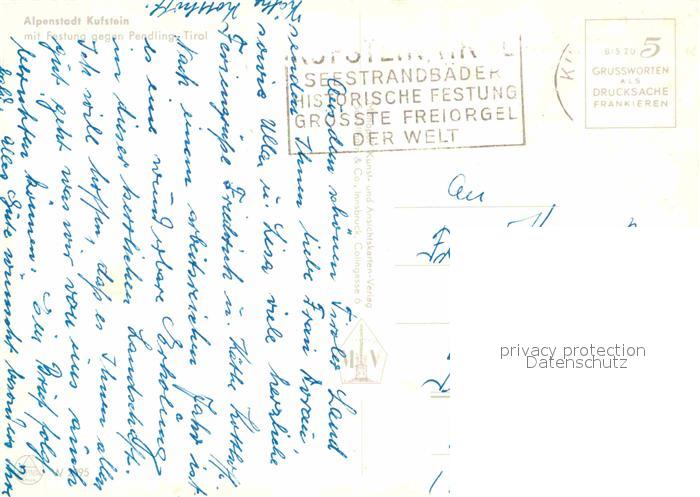 Alpenstadt Kufstein
mit Festung gegen Pendling, Tirol
SEESTRANDBÄDER
HISTORISCHE FESTUNG
GRÖSSTE FREIORGEL
DER WELT
BIS ZU 5
GRUSSWORTEN
ALS
DRUCKSACHE
FRANKIEREN
Kunst- und Ansichtskarten-Verlag
& Co., Innsbruck, Colingasse 6
An
Aus dem schönen Tiroler Land
senden Ihnen liebe Frau
sowie Ulla u. Lisa viele herzliche
Feriengrüße Friedrich u. Käthe
Nach einem arbeitsreichen Jahr ist
es eine wunderbare Erholung
in dieser herrlichen Landschaft.
Ich will hoffen, daß es Ihnen allen
gut geht was wir von uns auch
berichten können. Ein Brief folgt
bald. Alles Gute wünscht
privacy protection
Datenschutz